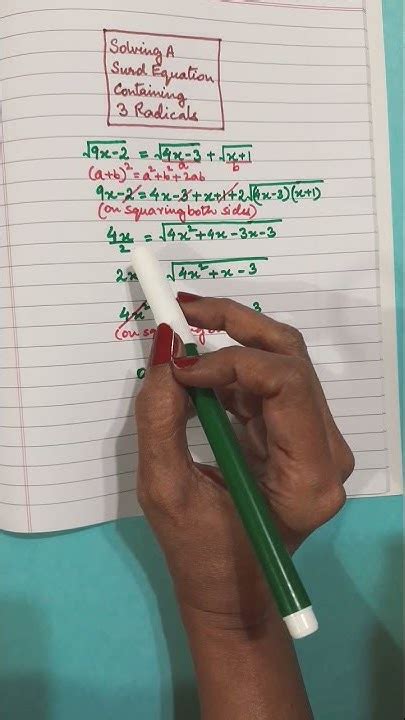 Solving A
Surd Equation
Containing
3 Radicals
√9x-2 = √4x-3 + √x+1
a b
(a+b)² = a²+b²+2ab
9x-2 = 4x-3+x+1+2√(4x-3)(x+1)
(on squaring both sides)
4x/2 = √4x²+4x-3x-3
2x √4x²+x-3
4x² 3
(on
0